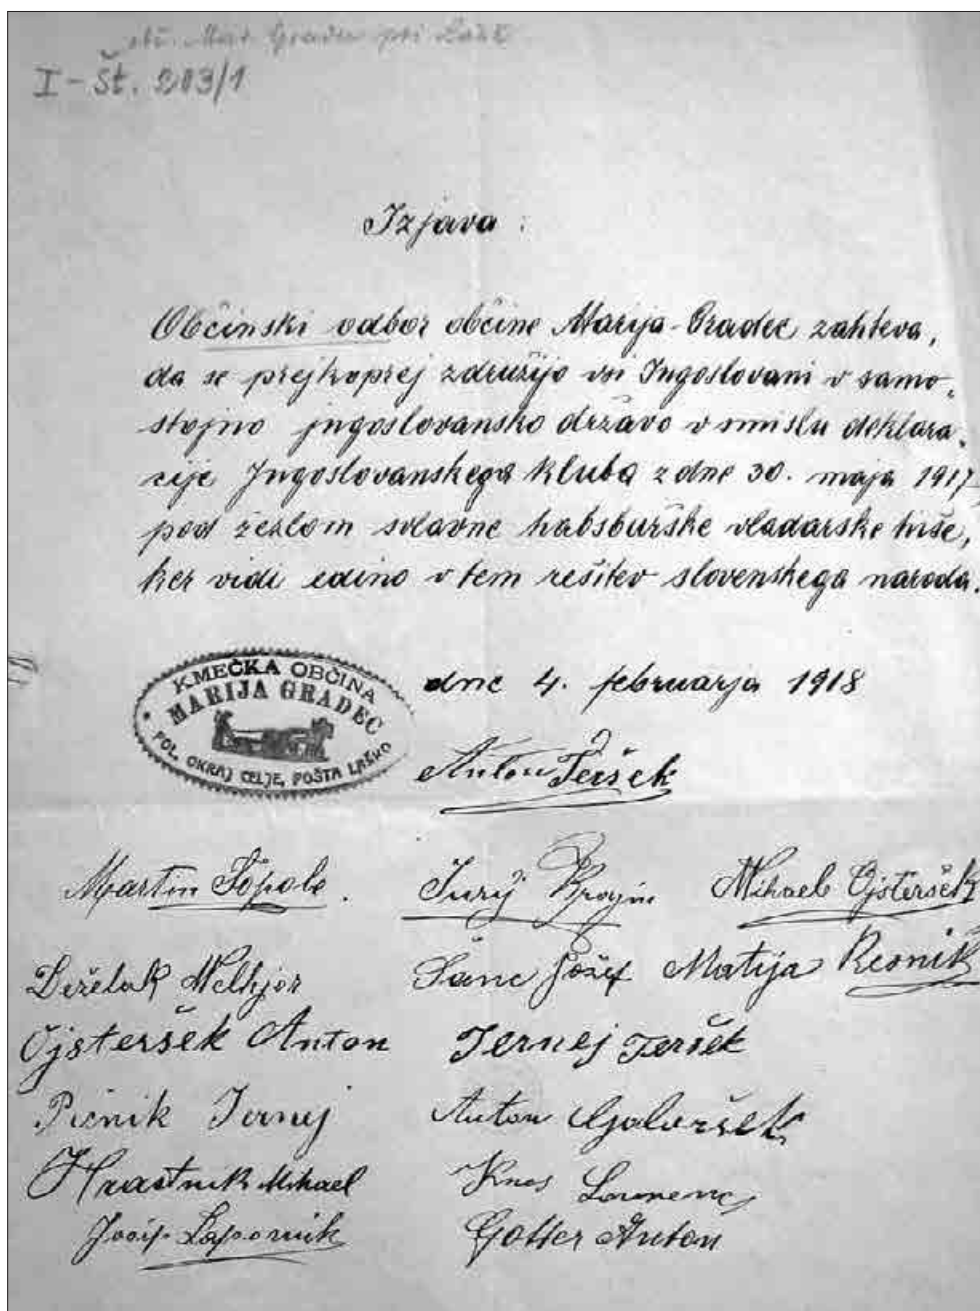 obč. Mar. Gradec pri Laš.
I - Št. 203/1
Izjava :
Občinski odbor občine Marija-Gradec zahteva,
da se prejkoprej združijo vsi Jugoslovani v samo-
stojno jugoslovansko državo v smislu deklara-
cije Jugoslovanskega kluba z dne 30. maja 1917
pod žezlom slavne habsburške vladarske hiše,
ker vidi edino v tem rešitev slovenskega naroda.
KMEČKA OBČINA
MARIJA GRADEC
POL. OKRAJ CELJE, POŠTA LAŠKO
dne 4. februarja 1918
Anton Teršek
Martin Jurij Mihael Ojsteršek
Deželak Melhjor Šanc Jožef Matija Resnik
Ojsteršek Anton Jernej Teršek
Pičnik Jernej Anton
Hrastnik Mihael Knes Lovrenc
Josip Lapornik Golter Anton